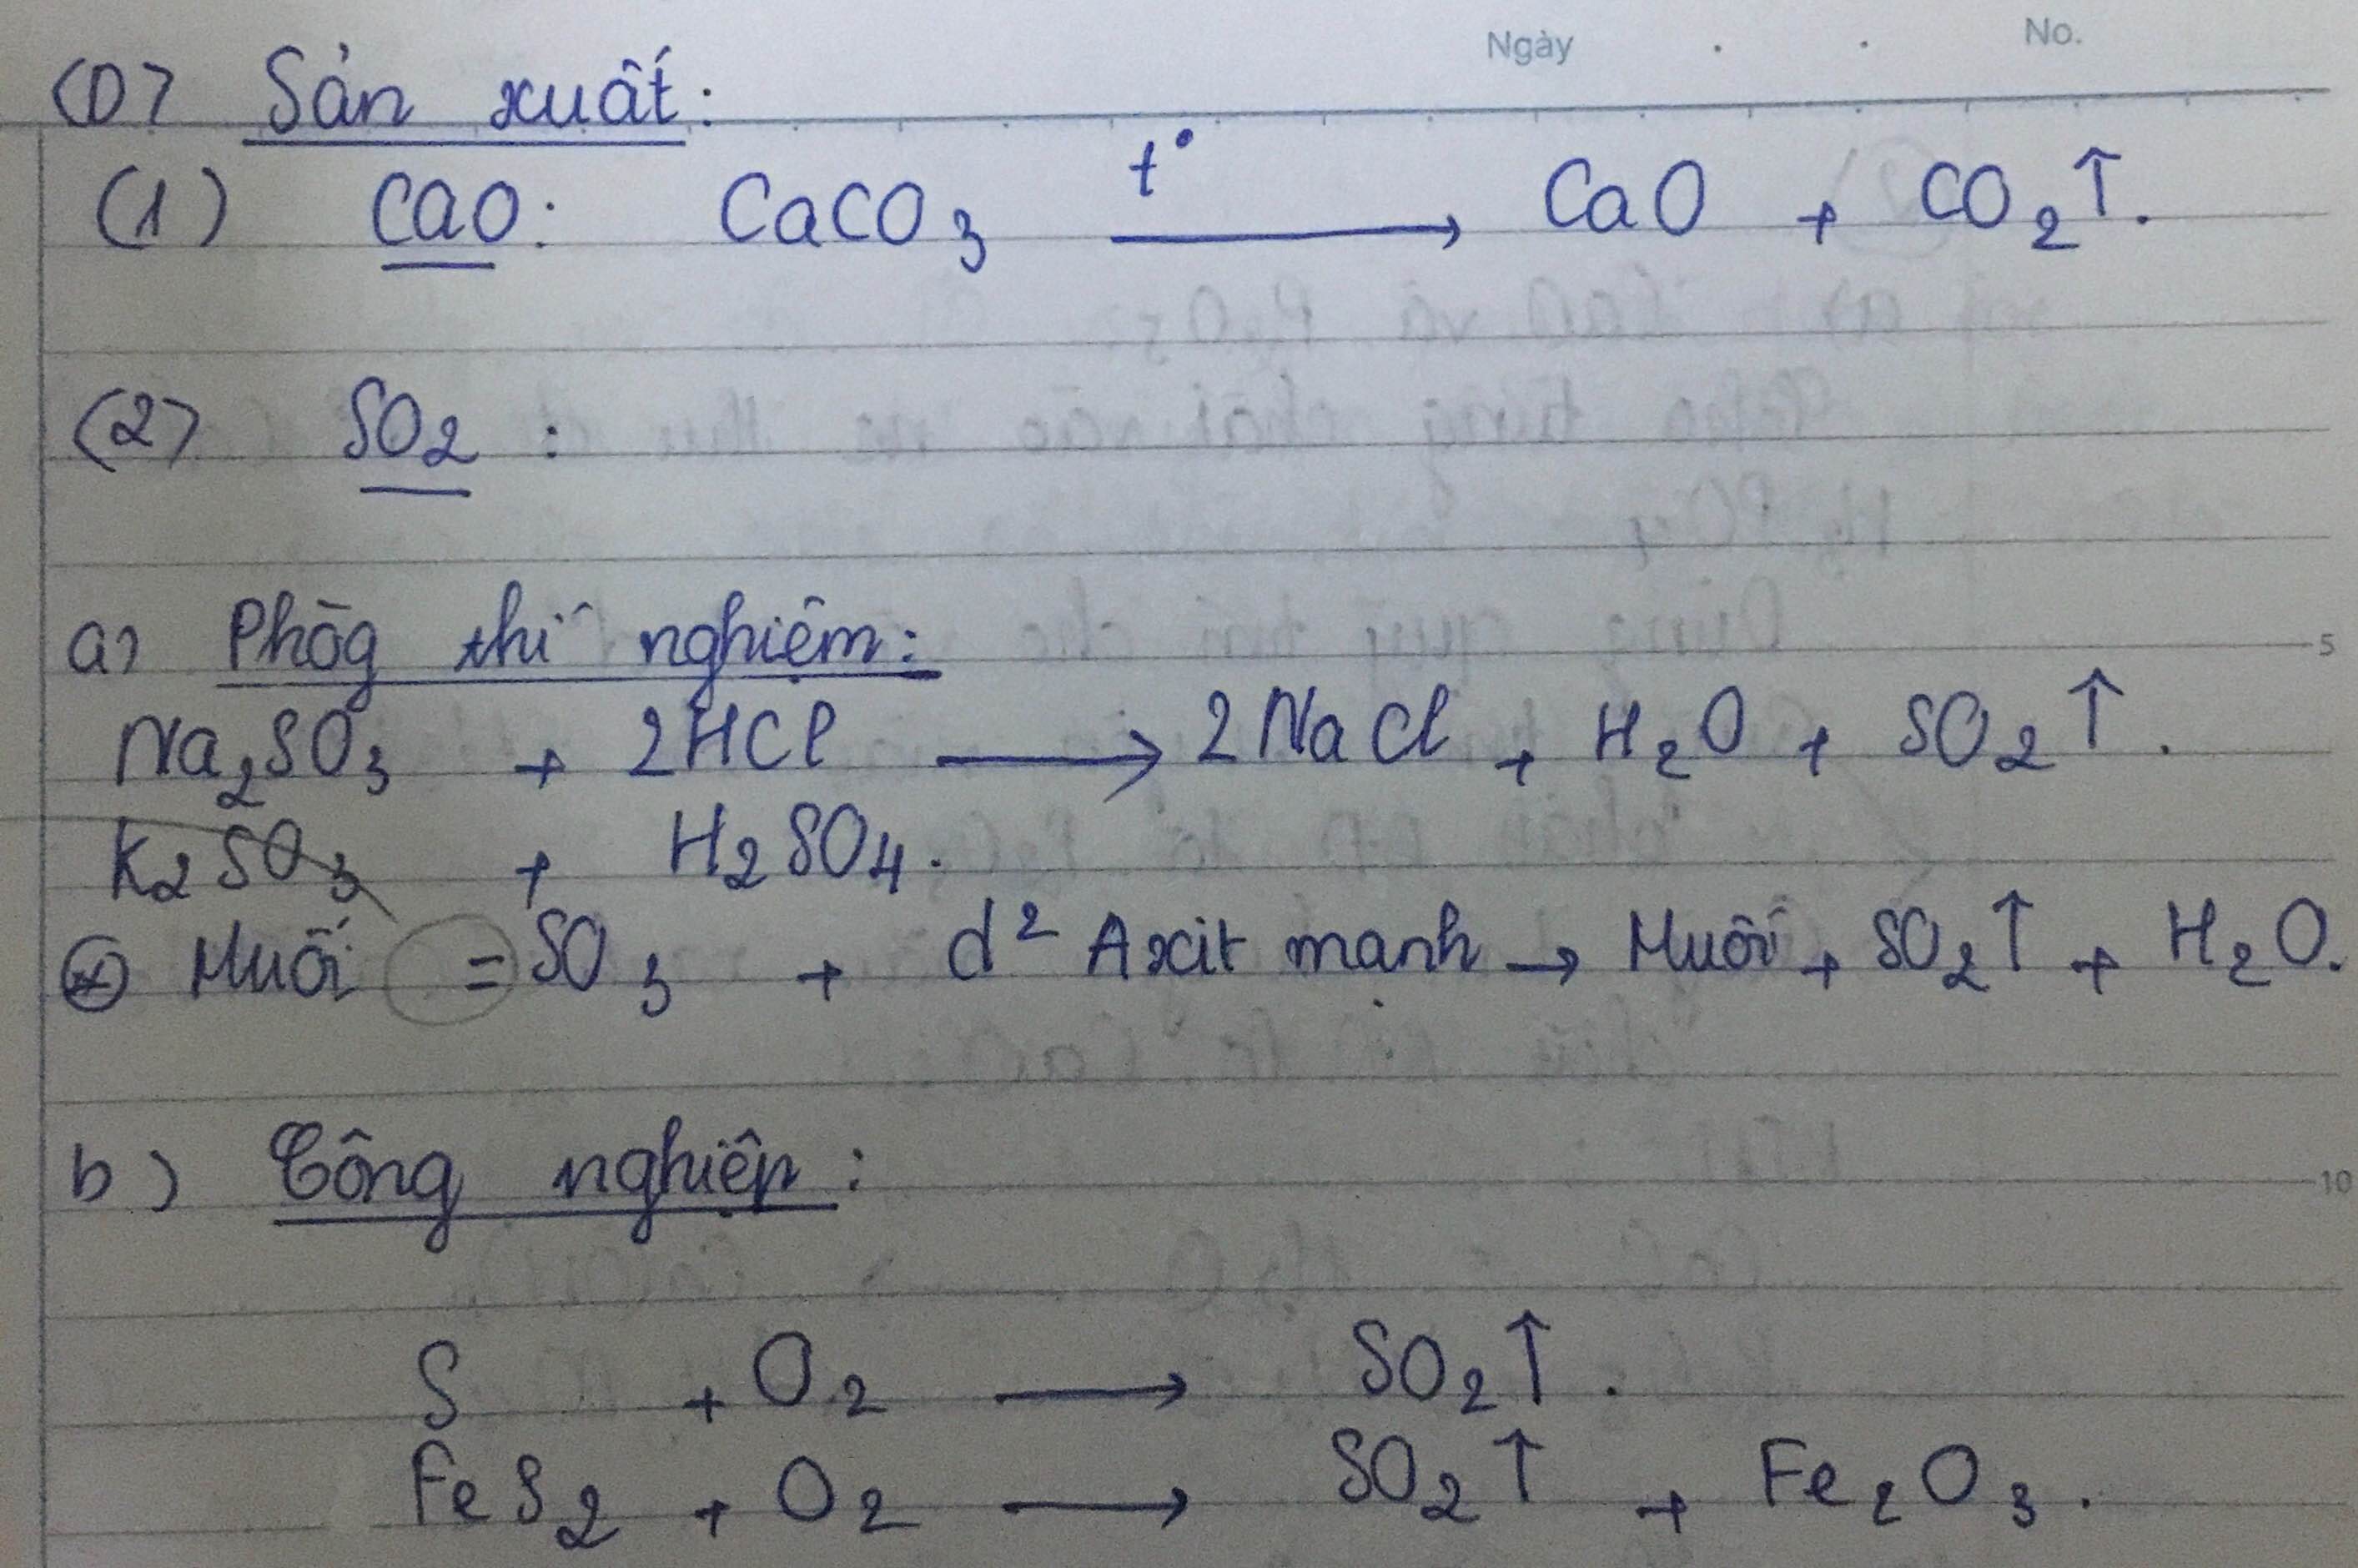 Ngày . . No.
(D) Sản xuất:
(1) CaO: CaCO₃ t° → CaO + CO₂↑.
(2) SO₂ :
a) Phòg thí nghiệm: 5
Na₂SO₃ + 2HCl → 2NaCl + H₂O + SO₂↑.
K₂SO₃ + H₂SO₄.
⊛ Muối =SO₃ + d² Axit mạnh → Muối + SO₂↑ + H₂O.
b) Công nghiệp: 10
S + O₂ → SO₂↑.
FeS₂ + O₂ → SO₂↑ + Fe₂O₃.